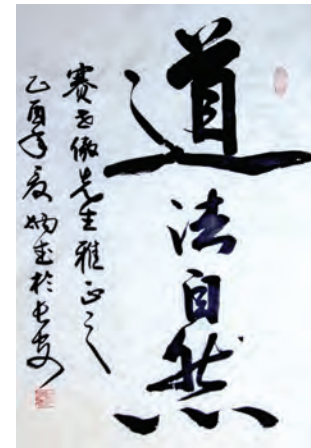 道法自然
赛西傲先生雅正之
乙酉年夏炳武於长安